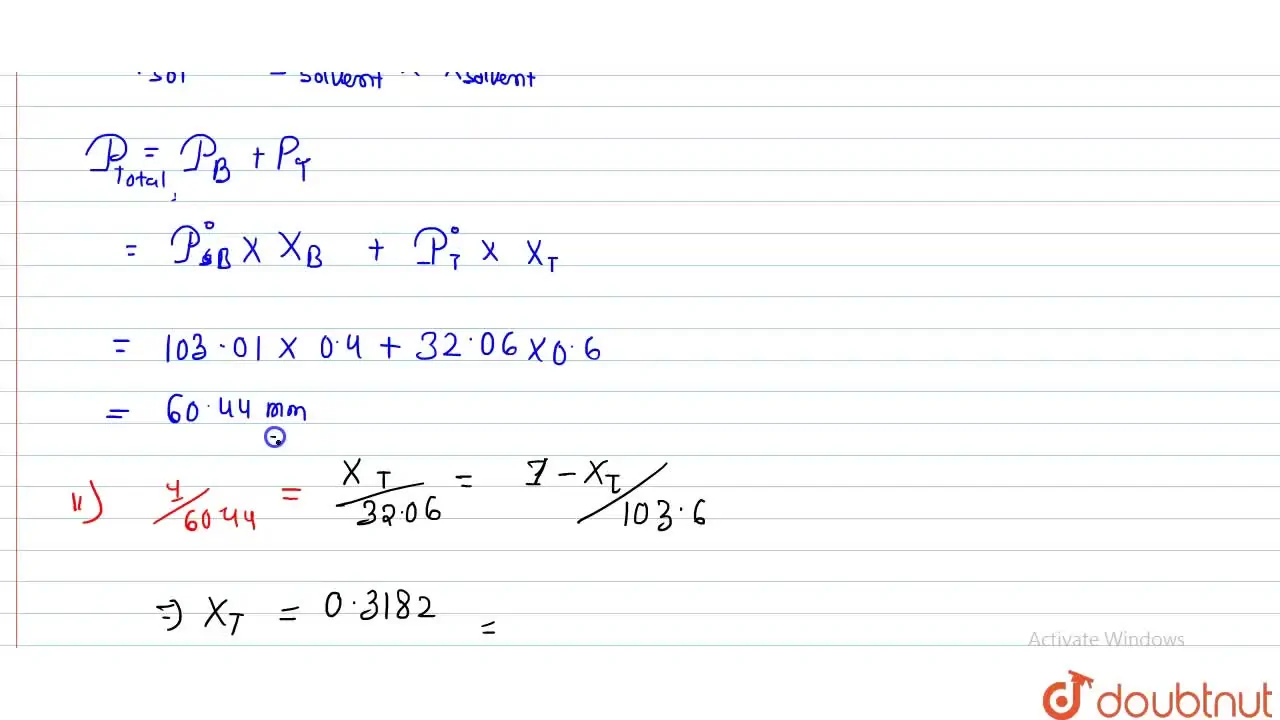 sol = solvent × Xsolvent
P total, = P_B + P_T
= P°_B × X_B + P°_T × X_T
= 103.01 × 0.4 + 32.06 × 0.6
= 60.44 mm
ii) 1/60.44 = X_T/32.06 = 1 - X_T/103.6
⇒ X_T = 0.3182 =
Activate Windows
doubtnut